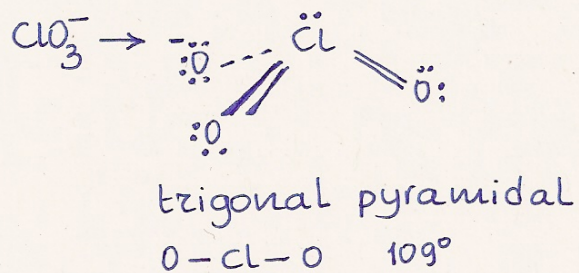 ClO₃⁻ → ⁻:Ö: Cl
O:
:O
trigonal pyramidal
O-Cl-O 109°